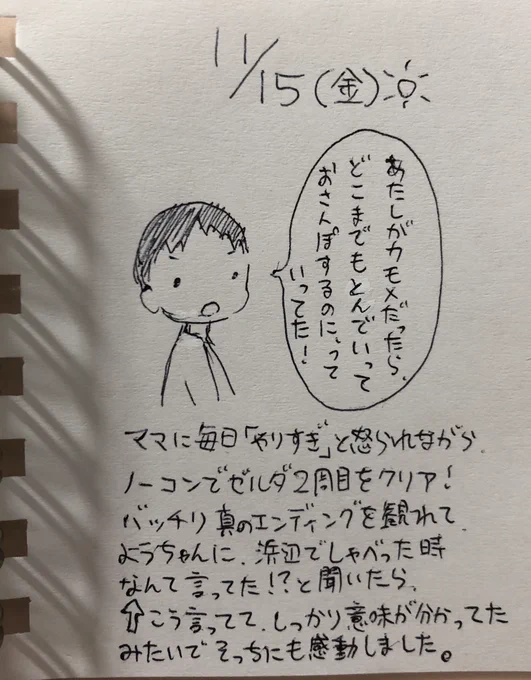 11/15(金)
あたしがカモメだったら、
どこまでもとんでいって
おさんぽするのに、って
いってた!
ママに毎日「やりすぎ」と怒られながら、
ノーコンでゼルダ2周目をクリア!
バッチリ真のエンディングを観れて、
ようちゃんに、浜辺でしゃべった時
なんて言ってた!?と聞いたら、
⇧こう言ってて、しっかり意味が分かってた
みたいでそっちにも感動しました。